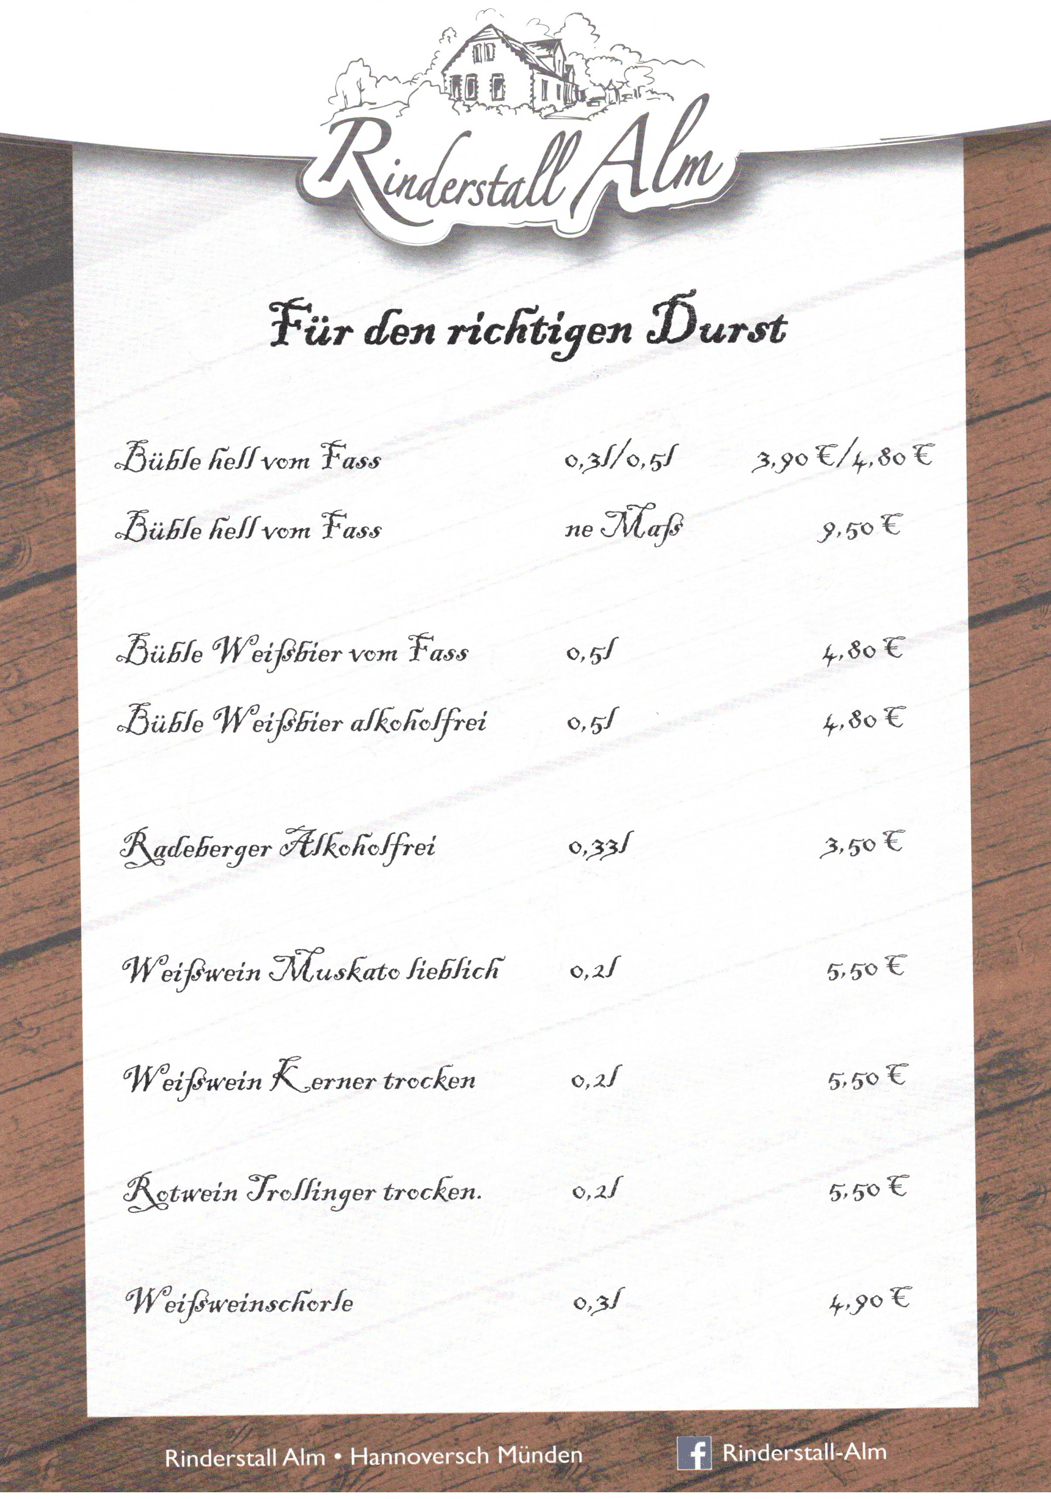 Rinderstall Alm
Für den richtigen Durst
Büble hell vom Fass 0,3l/0,5l 3,90 €/4,80 €
Büble hell vom Fass ne Maß 9,50 €
Büble Weißbier vom Fass 0,5l 4,80 €
Büble Weißbier alkoholfrei 0,5l 4,80 €
Radeberger Alkoholfrei 0,33l 3,50 €
Weißwein Muskato lieblich 0,2l 5,50 €
Weißwein Kerner trocken 0,2l 5,50 €
Rotwein Trollinger trocken. 0,2l 5,50 €
Weißweinschorle 0,3l 4,90 €
Rinderstall Alm • Hannoversch Münden f Rinderstall-Alm